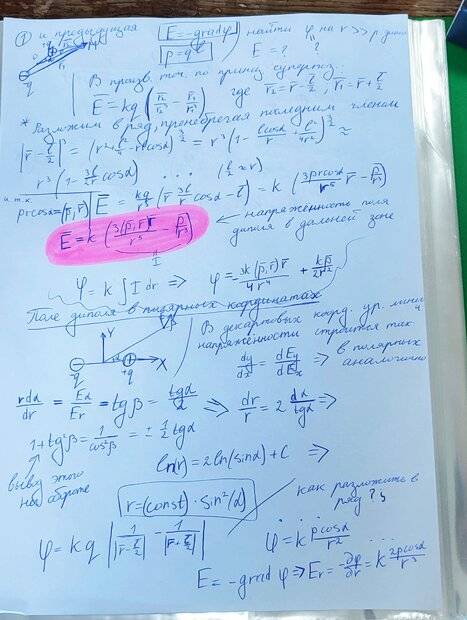 ① и предыдущая E = -gradφ } найти φ на r >> p
p = qℓ E = ? φ = ?
-q
В произв. точ. по принц. суперпоз.:
E̅ = kq (r̅₂/r₂³ - r̅₁/r₁³) где r̅₂ = r̅ - ℓ̅/2 ; r̅₁ = r̅ + ℓ̅/2
* Разложим в ряд, пренебрегая последним членом
|r̅ - ℓ̅/2|³ = (r² + ℓ²/4 - rℓcosα)^(3/2) = r³(1 - ℓcosα/r + ℓ²/4r²)^(3/2) ≈
r³(1 - 3ℓ/2r cosα) . . . (ℓ/2 ≈ r)
и т.к.
prcosα = (p̅, r̅) | E̅ = kq/r³ (r̅ · 3ℓ/r cosα - ℓ̅) = k (3prcosα/r⁵ r̅ - p̅/r³)
E̅ = k (3(p̅, r̅) r̅/r⁵ - p̅/r³) ← напряжённость поля
диполя в дальней зоне
I
φ = k ∫ I dr => φ = -3k(p̅, r̅) r̅/4r⁴ + kp̅/2r²
Поле диполя в полярных координатах
В декартовых коорд. ур. линии
напряжённости строится так
Y X -q +q β
dy/dx = dEy/dEx => в полярных
аналогично
rdα/dr = Eα/Er = tgβ = tgα/2 => dr/r = 2 dα/tgα =>
1 + tg²β = 1/cos²β = ± 1/2 tgα
ln(r) = 2ln(sinα) + C =>
вывод этого
на обороте
r = (const) · sin²(α)
как разложить в
ряд ?
φ = kq | 1/|r̅ - ℓ̅/2| - 1/|r̅ + ℓ̅/2| | φ = k pcosα/r²
E = -grad φ => Er = -∂φ/∂r = k 2pcosα/r³